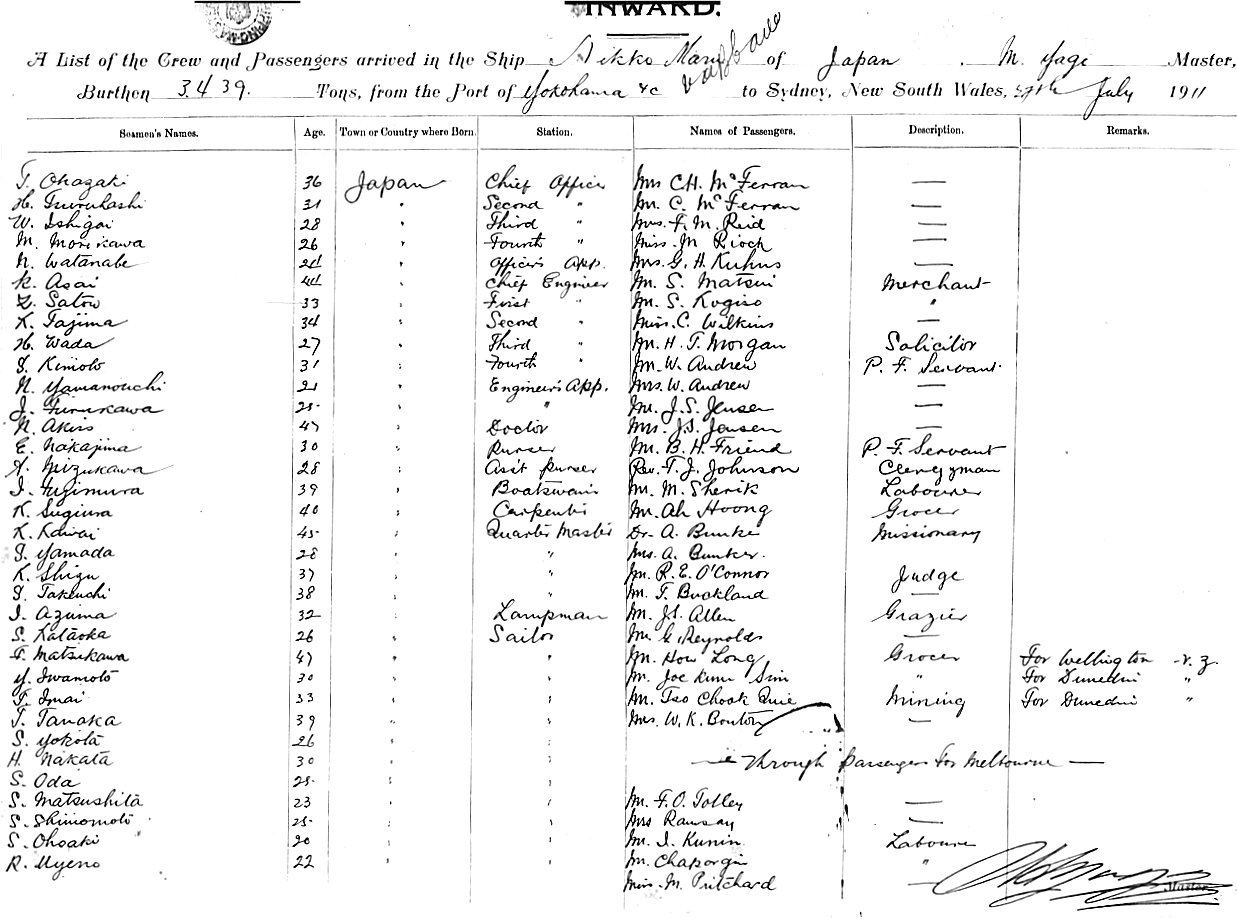 INWARD.
A List of the Crew and Passengers arrived in the Ship Nikko Maru of Japan . M. Yagi Master,
Burthen 3439. Tons, from the Port of Yokohama &c to Sydney, New South Wales, July 1911
Seamen's Names. Age. Town or Country where Born. Station. Names of Passengers. Description. Remarks.
T. Okazaki 36 Japan Chief Officer Mrs C.H. McFerran —
H. Tsuruhashi 31 " Second " Mr. C. McFerran —
W. Ishigai 28 " Third " Mrs. F. M. Reid —
M. Morikawa 26 " Fourth " Miss. M. Rioch —
N. Watanabe 21 " Officer's App. Mrs. G. H. Kuhns —
K. Asai 44 " Chief Engineer Mr. S. Matsui Merchant
Z. Satow 33 " First " Mr. S. Kogiso "
K. Tajima 34 " Second " Miss. C. Wilkins —
H. Wada 27 " Third " Mr. H. T. Morgan Solicitor
S. Kimoto 31 " Fourth " Mr. W. Andrew P. F. Servant.
N. Yamanouchi 21 " Engineer's App. Mrs. W. Andrew —
J. Furukawa 25 " " Mr. J. S. Jensen —
N. Akiss 47 " Doctor Mrs. J.S. Jensen —
E. Nakajima 30 " Purser Mr. B. H. Friend P. F. Servant
Mizukawa 28 " Ass't purser Rev. T. J. Johnson Clergyman
I. Fujimura 39 " Boatswain Mr. M. Sherik Labourer
K. Sugiura 40 " Carpenter Mr. Ah Hoong Grocer
K. Kawai 45 " Quarter Master Dr. A. Bunker Missionary
S. Yamada 28 " " Mrs. A. Bunker.
K. Shizu 37 " " Mr. R. E. O'Connor Judge
S. Takeuchi 38 " " Mr. T. Buckland —
I. Azuma 32 " Lampman Mr. J.S. Allen Grazier
S. Kataoka 26 " Sailor Mr. G. Reynolds —
T. Matsukawa 47 " " Mr. How Long Grocer For Wellington N.Z.
Y. Iwamoto 30 " " Mr. Joe Kum Sim " For Dunedin "
T. Imai 33 " " Mr. Tso Chook Quie Mining For Dunedin "
T. Tanaka 39 " " Mrs. W. K. Bouton —
S. Yokota 26 " "
H. Nakata 30 " " Through Passengers For Melbourne —
S. Oda 25 " "
S. Matsushita 23 " " Mr. F. O. Tolley —
S. Shimomoto 25 " " Mrs Ramsay —
S. Ohoaki 20 " " Mr. I. Kunin Labourer
R. Uyeno 22 " " Mr. Chaporgin "
Miss. M. Pritchard — Master.